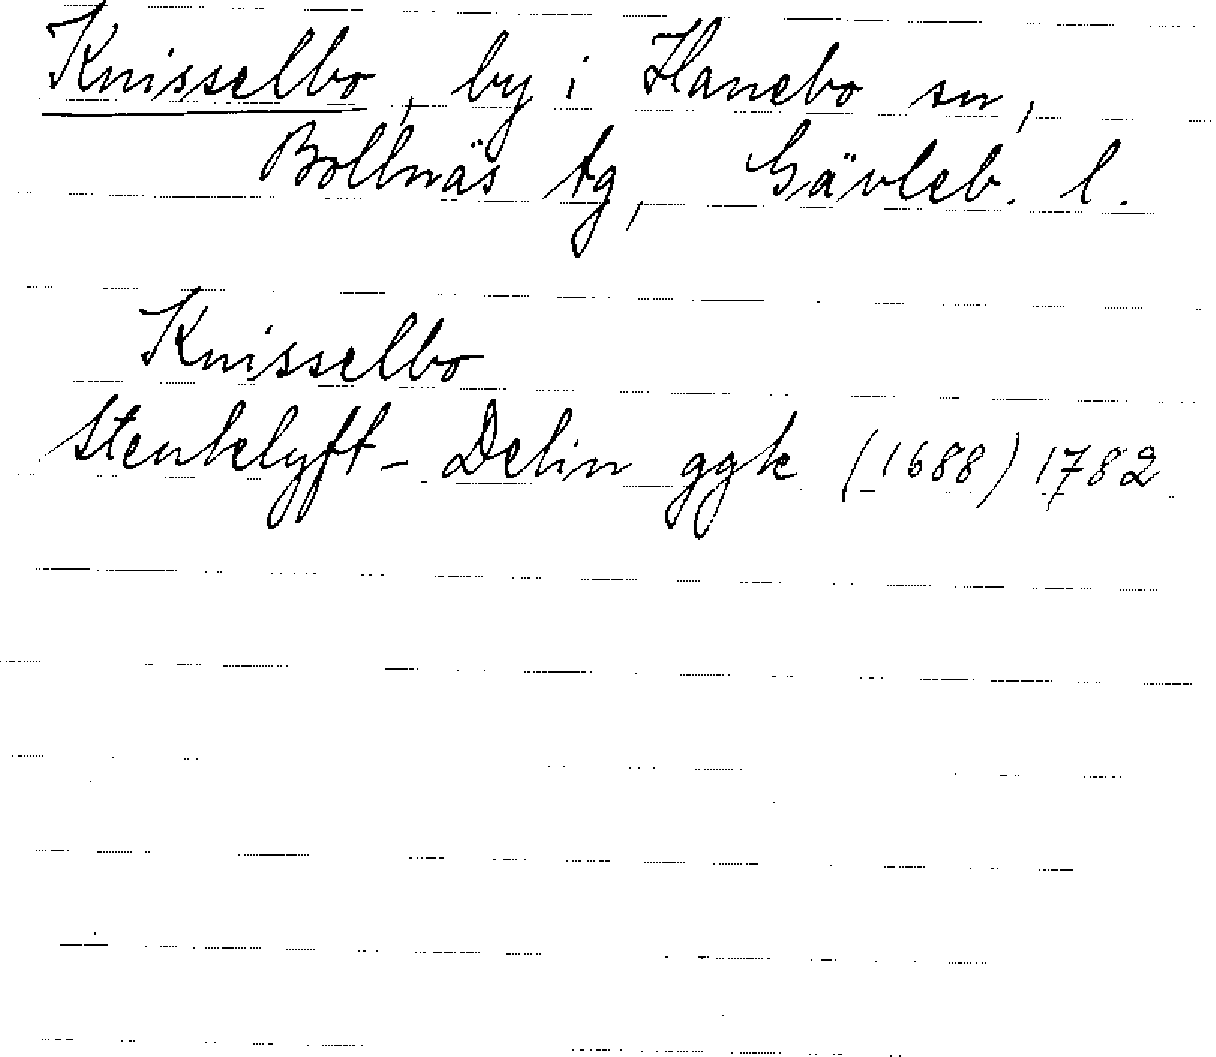 Knisselbo, by i Hanebo sn,
Bollnäs tg, Gävleb. l.
Knisselbo
Stenklyft - Delin ggk (1688) 1782